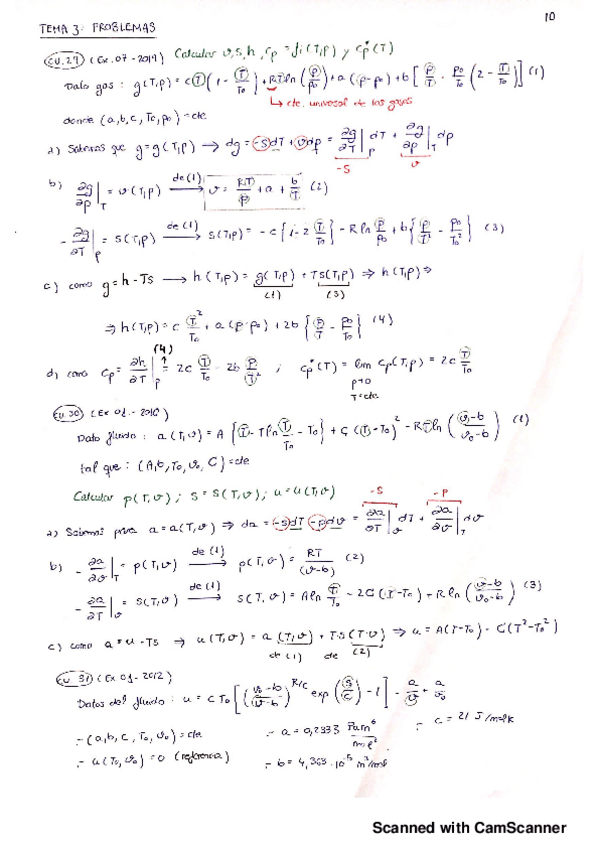 10
TEMA 3: PROBLEMAS
CU.29 (Ex.07-2014) Calcular v,s,h, cp = fi(T,p) y cp*(T)
Dato gas: g(T,p) = cT(1 - T/T0) + RT ln(p/p0) + a(p-p0) + b[p/T - p0/T0(2 - T/T0)] (1)
↳ cte. universal de los gases
donde (a,b,c,T0,p0) = cte
a) Sabemos que g=g(T,p) → dg = -sdT + vdp = ∂g/∂T|p dT + ∂g/∂p|T dp
-S v
b) ∂g/∂p|T = v(T,p) de(1)→ v = RT/p + a + b/T (2)
-∂g/∂T|p = s(T,p) de(1)→ s(T,p) = -c{1-2T/T0} - R ln p/p0 + b{p/T² - p0/T0²} (3)
c) como g=h-Ts → h(T,p) = g(T,p) + Ts(T,p) ⇒ h(T,p) ⇒
(1) (3)
⇒ h(T,p) = c T²/T0 + a(p-p0) + 2b{p/T - p0/T0} (4)
(4)
d) como cp = ∂h/∂T|p = 2c T/T0 - 2b p/T² ; cp*(T) = lim cp(T,p) = 2c T/T0
p→0
T=cte
CU.30 (Ex 01-2010)
Dato fluido: a(T,v) = A{T - T ln T/T0 - T0} + G(T-T0)² - RT ln(v-b/v0-b) (1)
tal que: (A,b,T0,v0,G) = cte
Calcular p(T,v); s = s(T,v); u = u(T,v)
-S -P
a) Sabemos para a=a(T,v) ⇒ da = -sdT - pdv = ∂a/∂T|v dT + ∂a/∂v|T dv
b) -∂a/∂v|T = p(T,v) de(1)→ p(T,v) = RT/(v-b) (2)
-∂a/∂T|v = s(T,v) de(1)→ s(T,v) = A ln T/T0 - 2G(T-T0) + R ln(v-b/v0-b) (3)
c) como a=u-Ts → u(T,v) = a(T,v) + T·s(T,v) ⇒ u = A(T-T0) - G(T²-T0²)
de (1) de (2)
CU.31 (Ex 01-2012)
Datos del fluido: u = cT0[(v0-b/v-b)^R/c exp(s/c) - 1] - a/v + a/v0
∴ (a,b,c,T0,v0) = cte ∴ a = 0,2333 Pa m⁶/mol² ∴ c = 21 J/molK
∴ u(T0,v0) = 0 (referencia) ∴ b = 4,363·10⁻⁵ m³/mol
Scanned with CamScanner